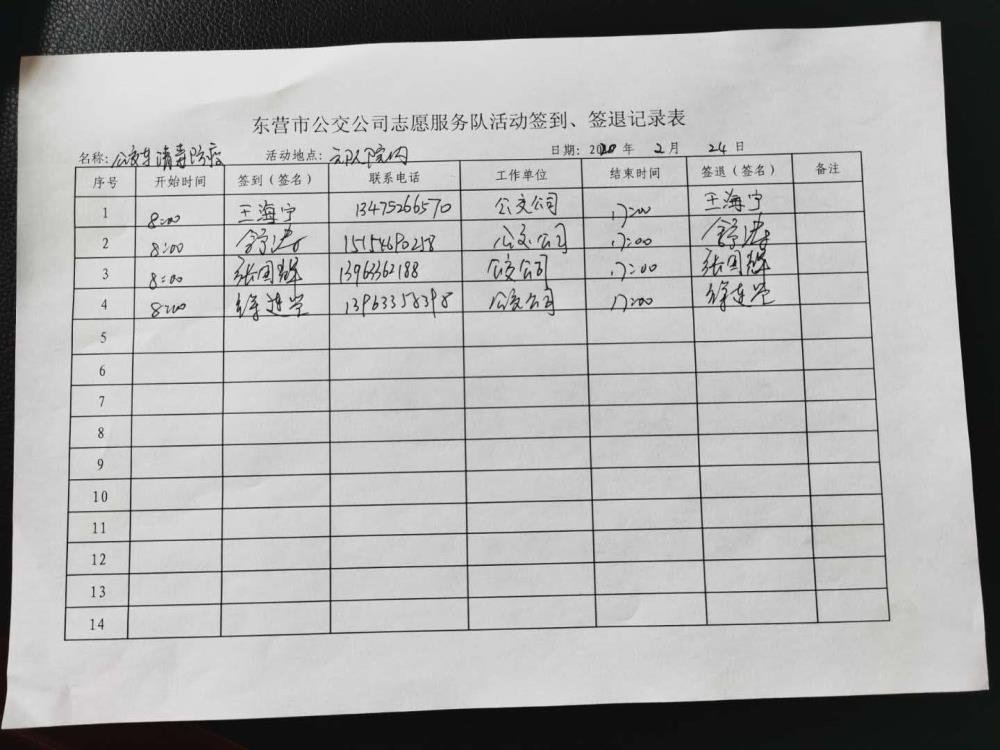 东营市公交公司志愿服务队活动签到、签退记录表
名称: 公交车消毒防疫 活动地点: 三队院内 日期: 2020 年 2 月 24 日
序号 开始时间 签到（签名） 联系电话 工作单位 结束时间 签退（签名） 备注
1 8:00 王海宁 13475266570 公交公司 17:00 王海宁
2 8:00 舒涛 15154690258 公交公司 17:00 舒涛
3 8:00 张国辉 13963362188 公交公司 17:00 张国辉
4 8:00 徐连堂 13963358398 公交公司 17:00 徐连堂
5
6
7
8
9
10
11
12
13
14